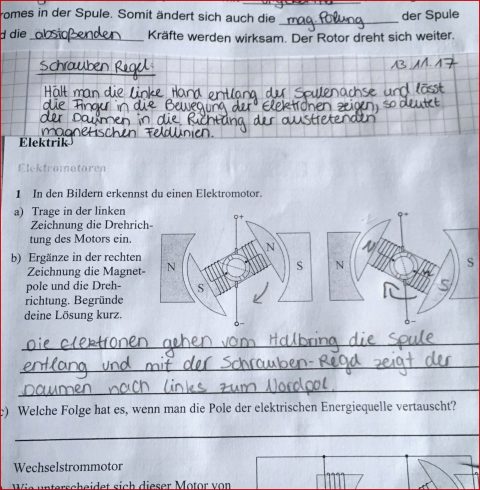 romes in der Spule. Somit ändert sich auch die mag. Polung der Spule
d die abstoßenden Kräfte werden wirksam. Der Rotor dreht sich weiter.
Schrauben Regel: 13.11.17
Hält man die linke Hand entlang der Spulenachse und lässt
die Finger in die Bewegung der Elektronen zeigen, so deutet
der Daumen in die Richtung der austretenden
magnetischen Feldlinien.
Elektrik
Elektromotoren
1 In den Bildern erkennst du einen Elektromotor.
a) Trage in der linken
Zeichnung die Drehrich-
tung des Motors ein.
b) Ergänze in der rechten
Zeichnung die Magnet-
pole und die Dreh-
richtung. Begründe
deine Lösung kurz.
+
N
N
S
S
-
+
N
N
S
S
-
Die Elektronen gehen vom Halbring die Spule
entlang und mit der Schrauben-Regel zeigt der
Daumen nach links zum Nordpol.
c) Welche Folge hat es, wenn man die Pole der elektrischen Energiequelle vertauscht?
Wechselstrommotor
Wie unterscheidet sich dieser Motor von